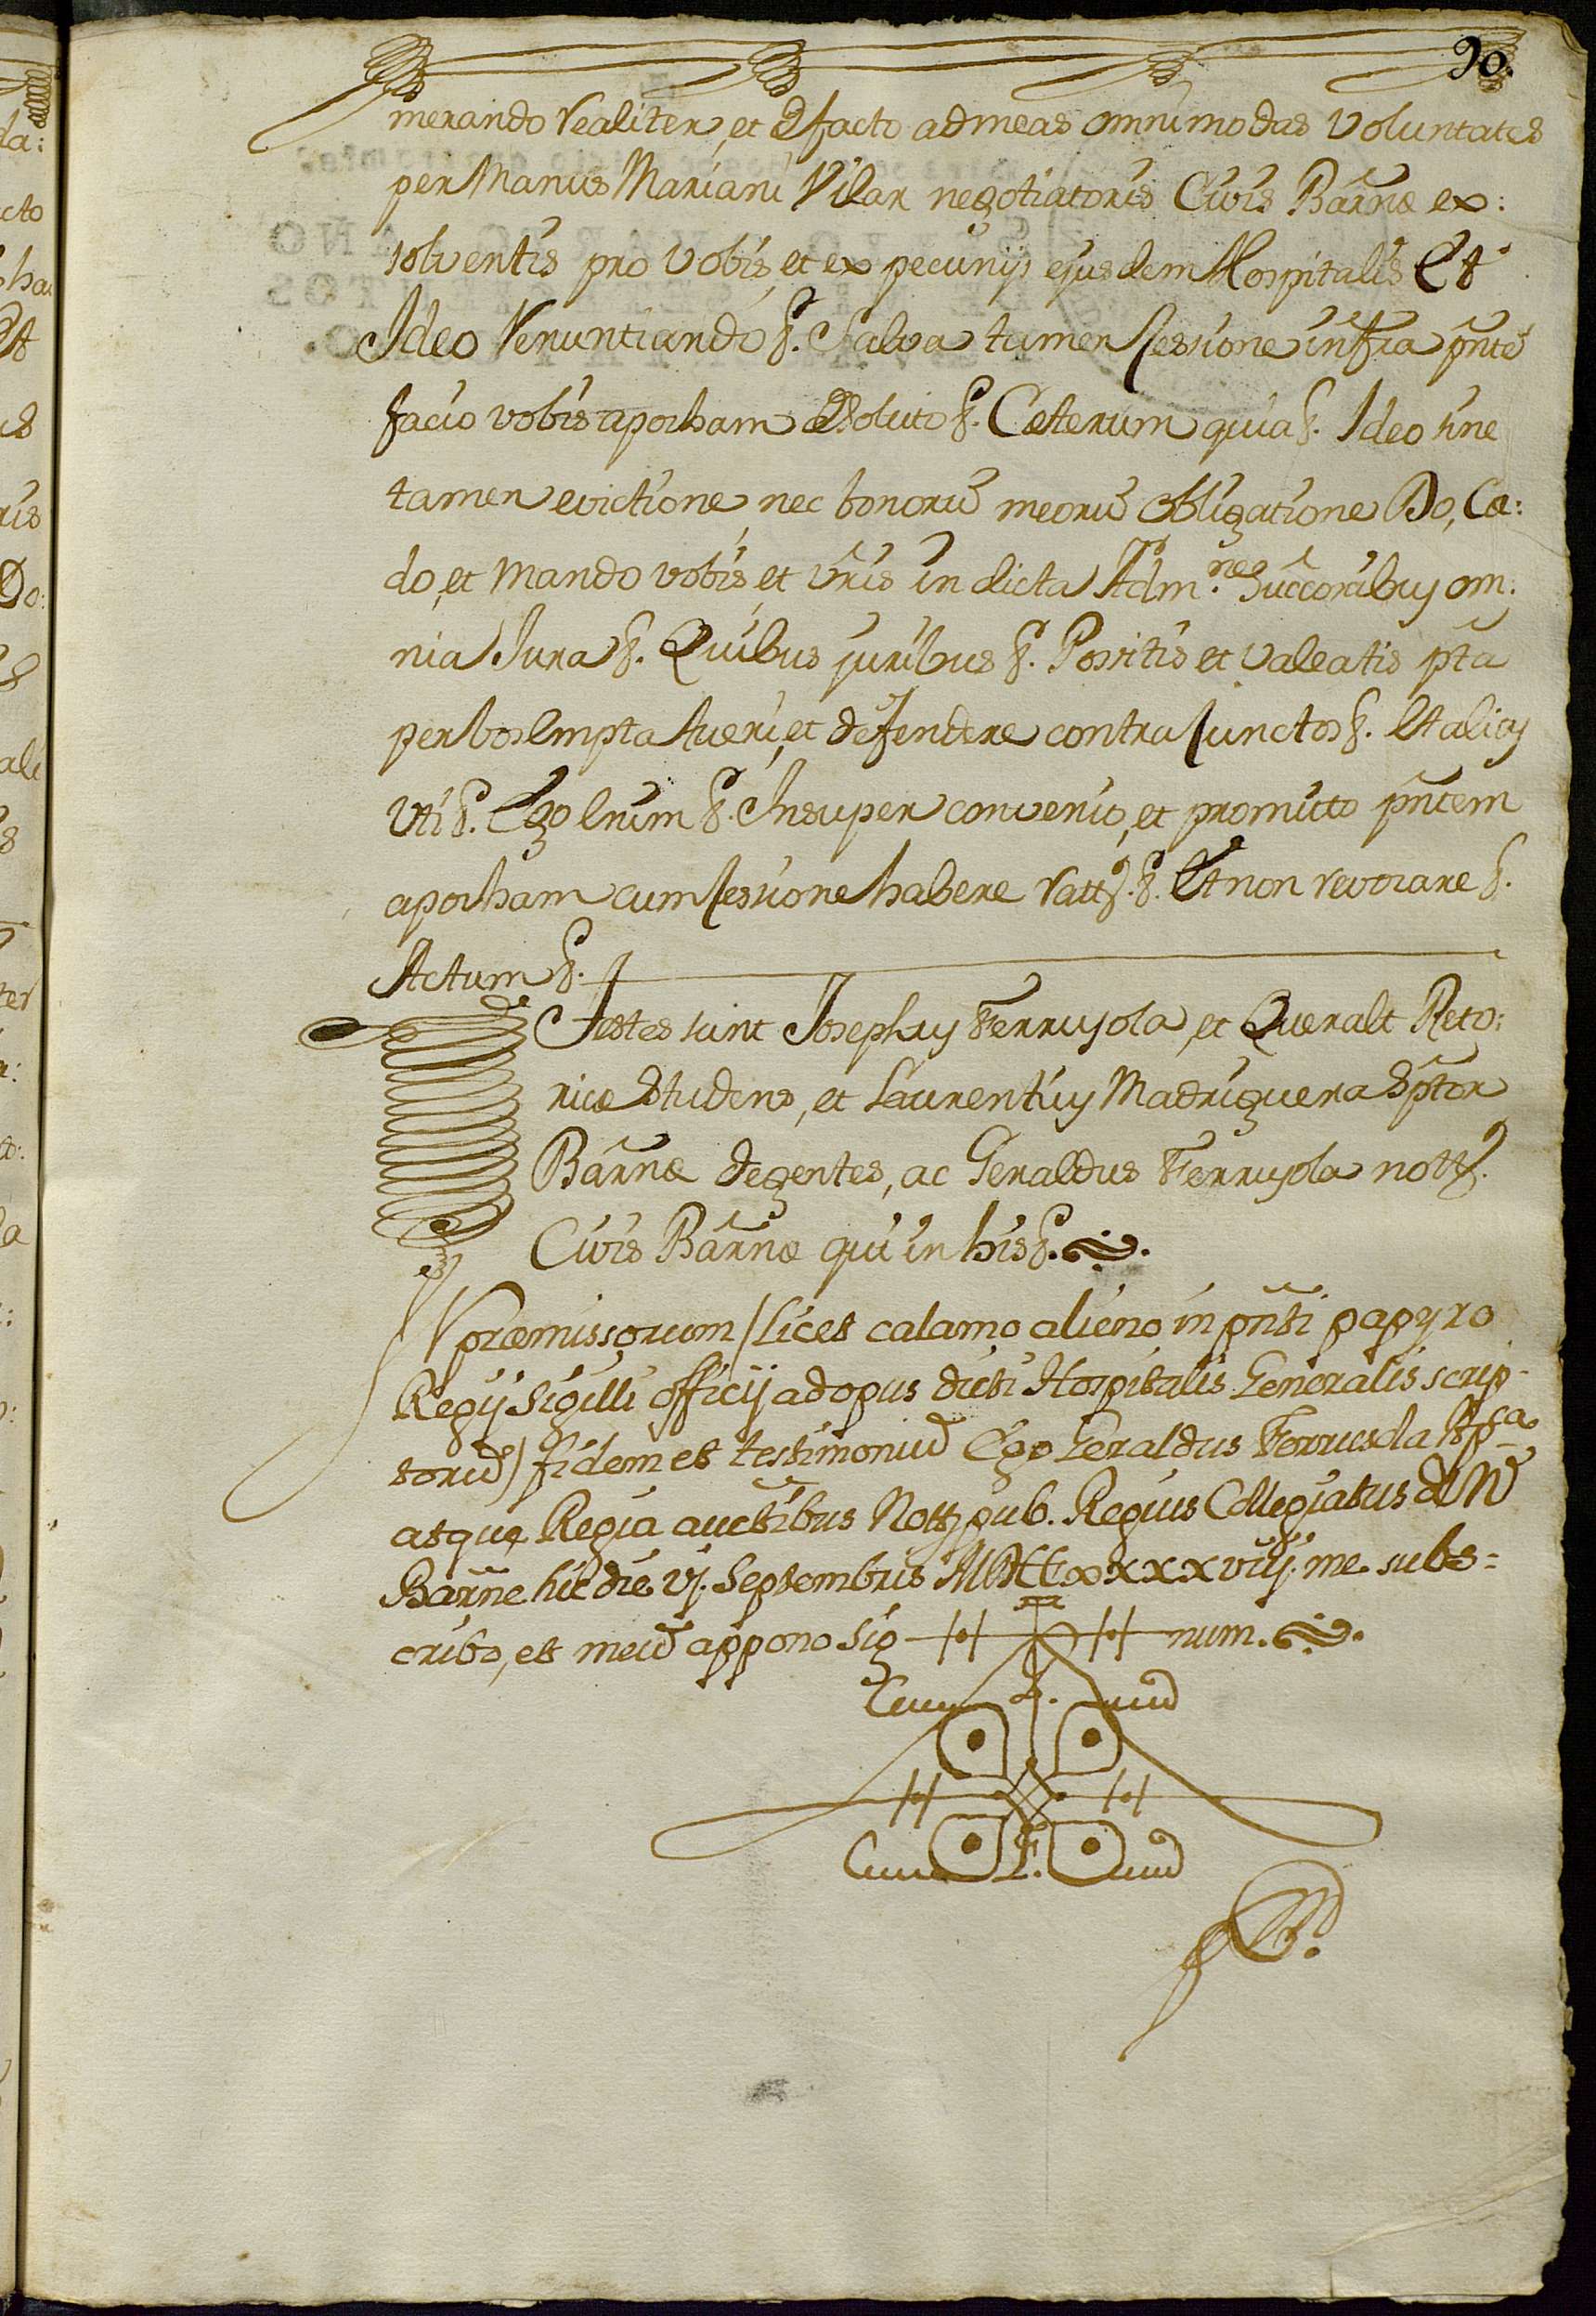 90.
merando realiter, et de facto ad meas omnimodas voluntates
per manus Mariani Vilar negotiatoris Civis Barñæ ex:
solventis pro vobis, et ex pecunijs ejusdem Hospitalis Et
Ideo renuntiando &. Salva tamen Cessione infra pñte
facio vobis apocham de soluto &. Cæterum quia &. Ideo sine
tamen evictione, nec bonorũ meorũ obligatione Do, Ce:
do, et mando vobis, et vr̃is in dicta Adm.ne Succoribus om:
nia Jura &. Quibus juribus &. Possitis et valeatis pta
per vos empta tueri, et defendere contra cunctos &. Et alias
Uti &. Ego enim &. Insuper convenio, et promitto pñtem
apocham cum Cessione habere ratt. &. Et non revocare &.
Actum &.
Testes sunt Josephus Ferrusola, et Queralt Reto:
ricæ Studens, et Laurentius Madriguera Sptor
Barñæ degentes, ac Geraldus Ferrusola nott.
Civis Barñæ qui in his &.
præmissorum / Licet calamo alieno in pñti papyro
Regij Sigilli officij ad opus dicti Hospitalis Generalis scrip-
torũ / fidem et testimoniũ Ego Geraldus Ferrusola Ap.ca
atque Regia auctibus Nott. pub. Regius Collegiatus
Barñe hic die vj. Septembris me subs=
cribo, et meũ appono Sig num.